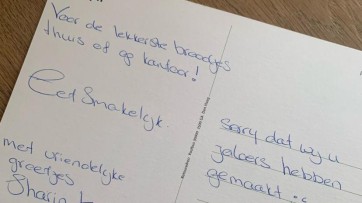 Voor de lekkerste broodjes
thuis of op kantoor!
Eet Smakelijk.
met vriendelijke
groetjes
Sharin
Sorry dat wij u
jaloers hebben
gemaakt :